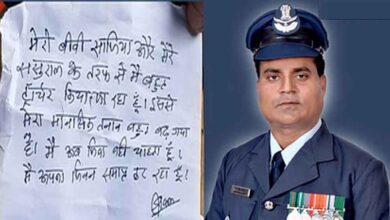 मेरी बीवी साजिया और मेरे
ससुराल के तरफ से मैं बहुत
टार्चर किया गया हूँ। इससे
मेरा मानसिक तनाव बहुत बढ़ गया
है। मैं अब जीना नहीं चाहता हूँ।
मैं अपना जीवन समाप्त कर रहा हूँ।